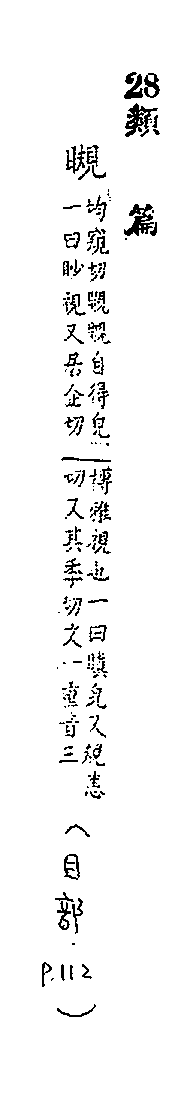 28類篇
瞡
均窺切瞡瞡自得皃
一曰眇視又居企切
博雅視也一曰瞋皃又規恚
切又其季切文一重音三
(目部.
P.112)